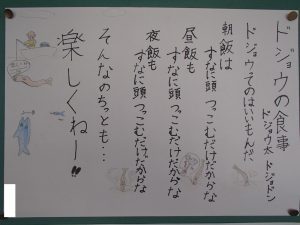 ドジョウの食事
ドジョウ太 ドジョドン
ドジョウってのはいいもんだ
朝飯は
すなに頭つっこむだけだからな
昼飯も
すなに頭つっこむだけだからな
夜飯も
すなに頭つっこむだけだからな
そんなのちっとも…
楽しくねー!!